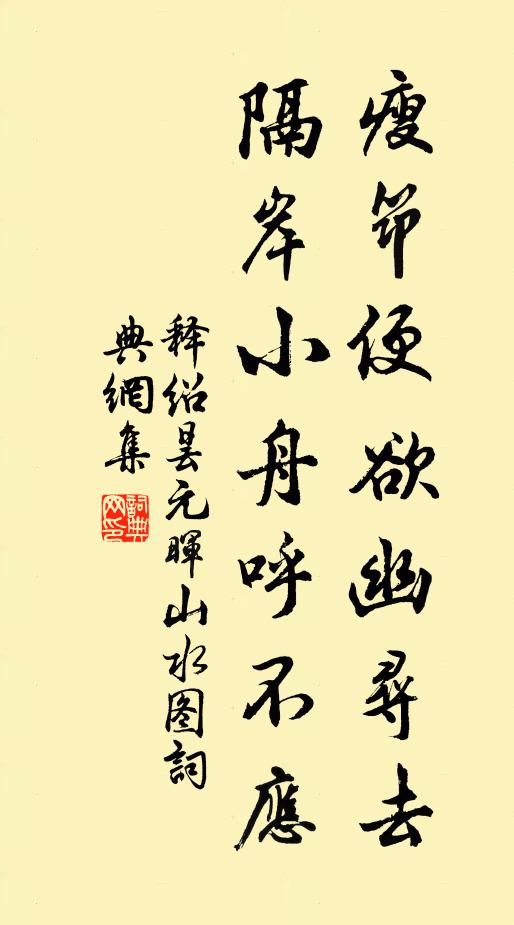 瘦筇便欲幽尋去
隔岸小舟呼不應
釋绍昙元暉山水图詞
典網集
詞典
网印